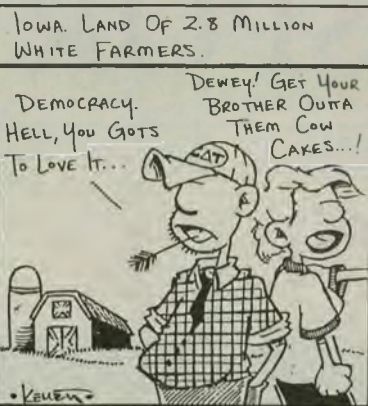 IOWA. LAND OF 2.8 MILLION
WHITE FARMERS.
DEMOCRACY.
HELL, YOU GOTS
TO LOVE IT...
DEWEY! GET YOUR
BROTHER OUTTA
THEM COW
CAKES...!